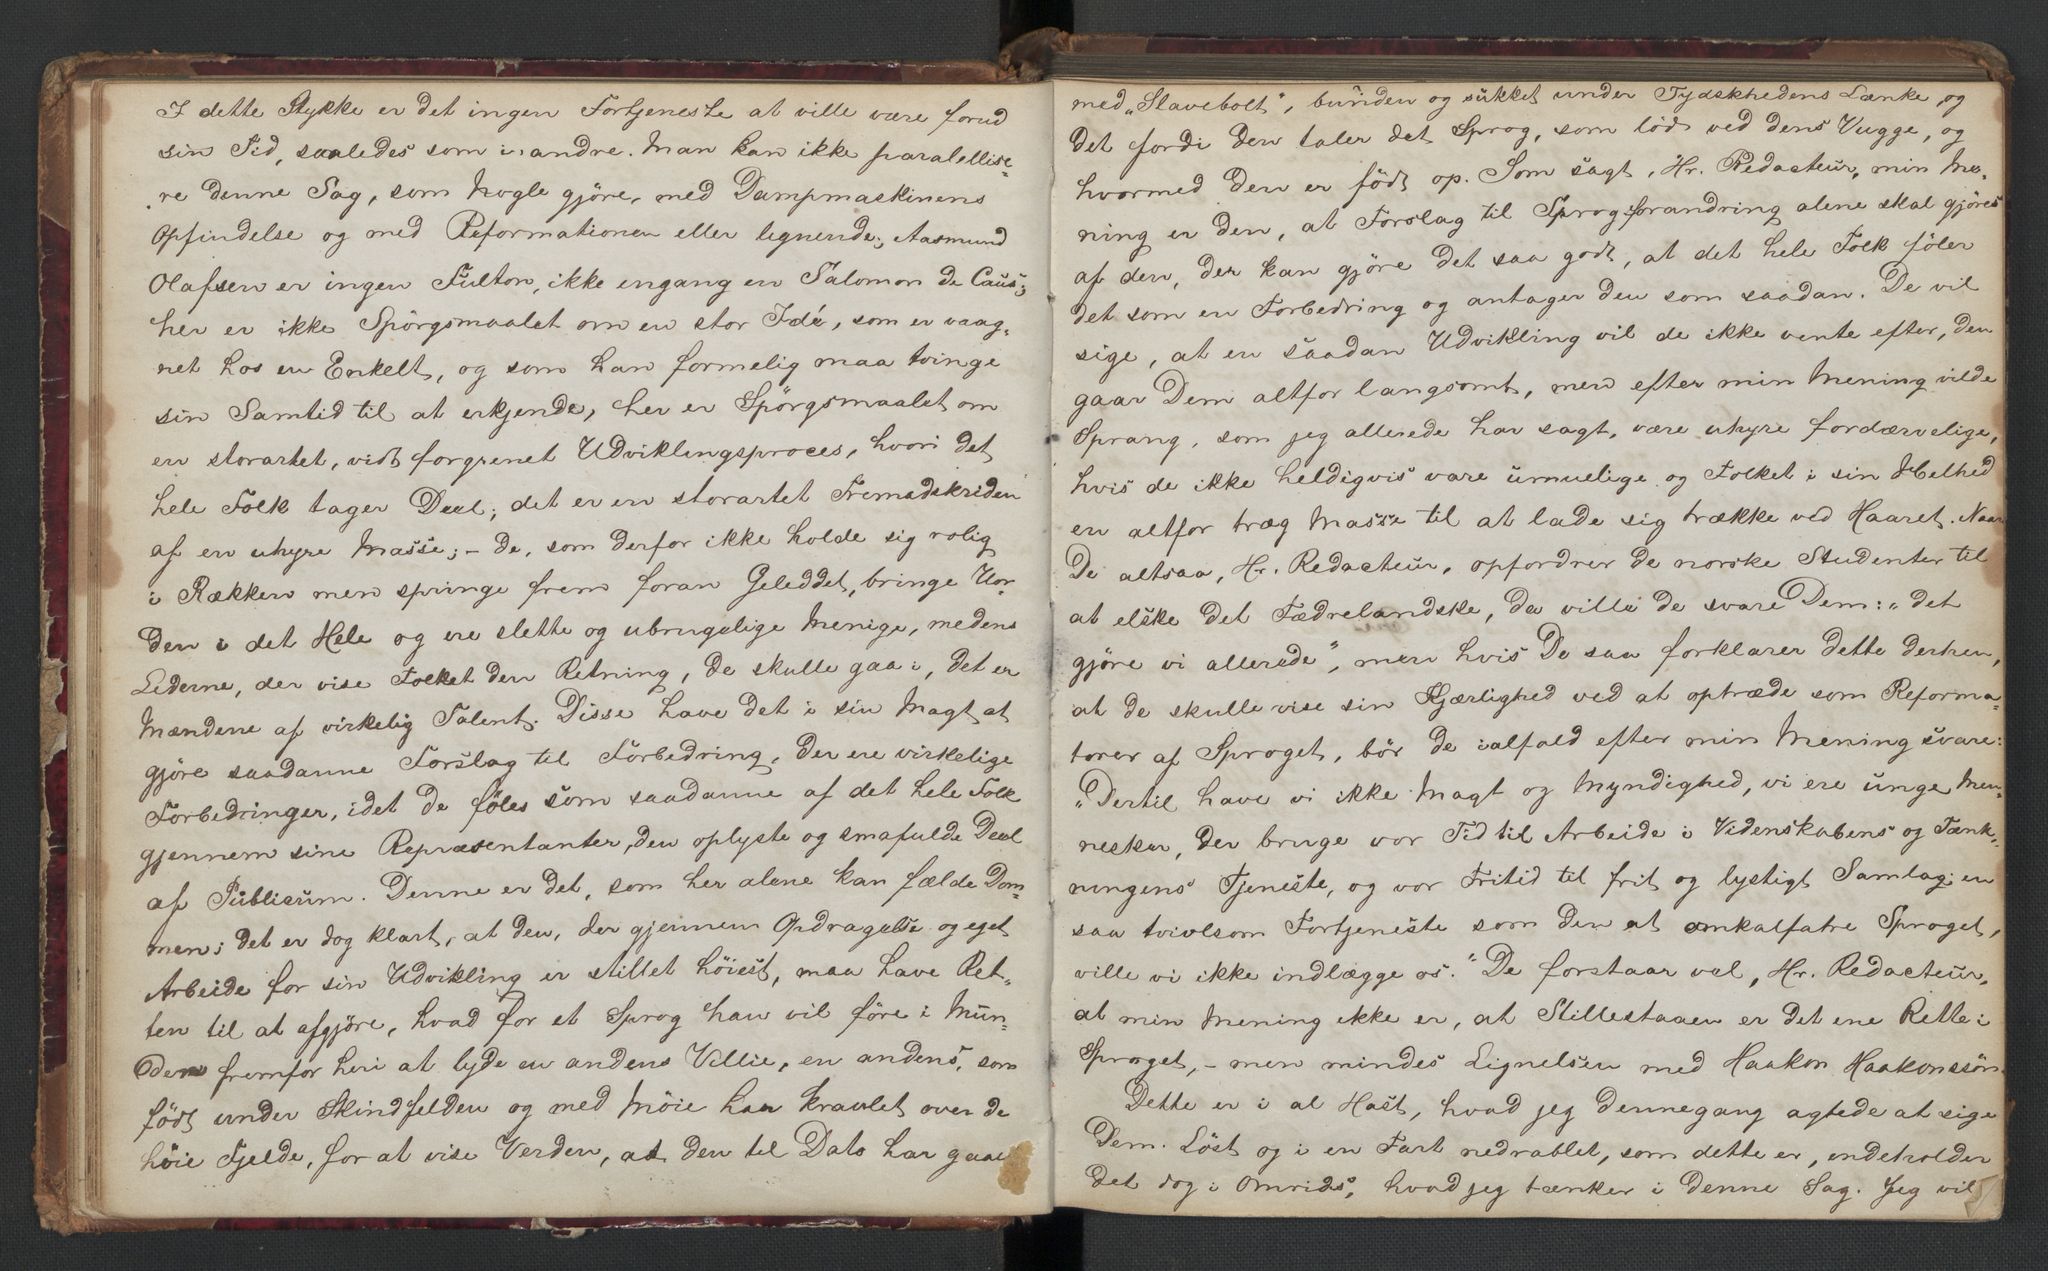 I dette Stykke er det ingen Fortjeneste at ville være forud
sin Tid, saaledes som i andre. Man kan ikke paralellise-
re denne Sag, som Nogle gjöre, med Dampmaskinens
Opfindelse og med Reformationen eller lignende; Aasmund
Olafsen er ingen Fulton, ikke engang en Salomon de Caus;
her er ikke Spörgsmaalet om en stor Idé, som er vaag-
net hos en Enkelt, og som han formelig maa tvinge
sin Samtid til at erkjende, her er Spörgsmaalet om
en storartet, vidt forgrenet Udviklingsproces, hvori det
hele Folk tager Deel; det er en storartet Fremadskriden
af en uhyre Masse; – de, som derfor ikke holde sig rolig
i Rækken men springe frem foran Geleddet, bringe Uor-
den i det Hele og ere slette og ubrugelige Menige, medens
Lederne, der vise Folket den Retning, de skulle gaa i, det er
Mændene af virkelig Talent. Disse have det i sin Magt at
gjöre saadanne Forslag til Forbedring, der ere virkelige
Forbedringer, idet de föles som saadanne af det hele Folk
gjennem sine Repræsentanter, den oplyste og smafulde Deel
af Publicum. Denne er det, som her alene kan fælde Dom-
men; det er dog klart, at den, der gjennem Opdragelse og eget
Arbeide for sin Udvikling er stillet höiest, maa have Ret-
ten til at afgjöre, hvad for et Sprog han vil före i Mun-
den fremfor heri at lyde en andens Villie, en andens, som
födt under Skindfelden og med Möie har kravlet over de
höie Fjelde, for at vise Verden, at den til Dato har gaaet
med „Slavebolt", bunden og sukket under Tydskhedens Lænke, og
det fordi den taler det Sprog, som löd ved dens Vugge, og
hvormed den er födt op. Som sagt, Hr. Redacteur, min Me-
ning er den, at Forslag til Sprogforandring alene skal gjöres
af den, der kan gjöre det saa godt, at det hele Folk föler
det som en Forbedring og antager den som saadan. De vil
sige, at en saadan Udvikling vil de ikke vente efter, den
gaar Dem altfor langsomt, men efter min Mening vilde
Sprang, som jeg allerede har sagt, være uhyre fordærvelige,
hvis de ikke heldigvis vare umuelige og Folket i sin Helhed
en altfor træg Masse til at lade sig trække ved Haaret. Naar
De altsaa, Hr. Redacteur, opfordrer de norske Studenter til
at elske det Fædrelandske, da ville de svare Dem: „det
gjöre vi allerede", men hvis De saa forklarer dette derhen,
at de skulle vise sin Kjærlighed ved at optræde som Reforma-
torer af Sproget, bör de ialfald efter min Mening svare:
„Dertil have vi ikke Magt og Myndighed, vi ere unge Men-
nesker, der bruge vor Tid til Arbeide i Videnskabens og Tænk-
ningens Tjeneste, og vor Fritid til frit og lystigt Samlag; en
saa tvivlsom Fortjeneste som den at omkalfatre Sproget,
ville vi ikke indlægge os." De forstaar vel, Hr. Redacteur,
at min Mening ikke er, at Stillestaaen er det ene Rette i
Sproget, – men mindes Lignelsen med Haakon Haakonssön.
Dette er i al Hast, hvad jeg dennegang agtede at sige
Dem. Löst og i en Fart nedrablet, som dette er, indeholder
det dog i Omrids, hvad jeg tænker i denne Sag. Jeg vil